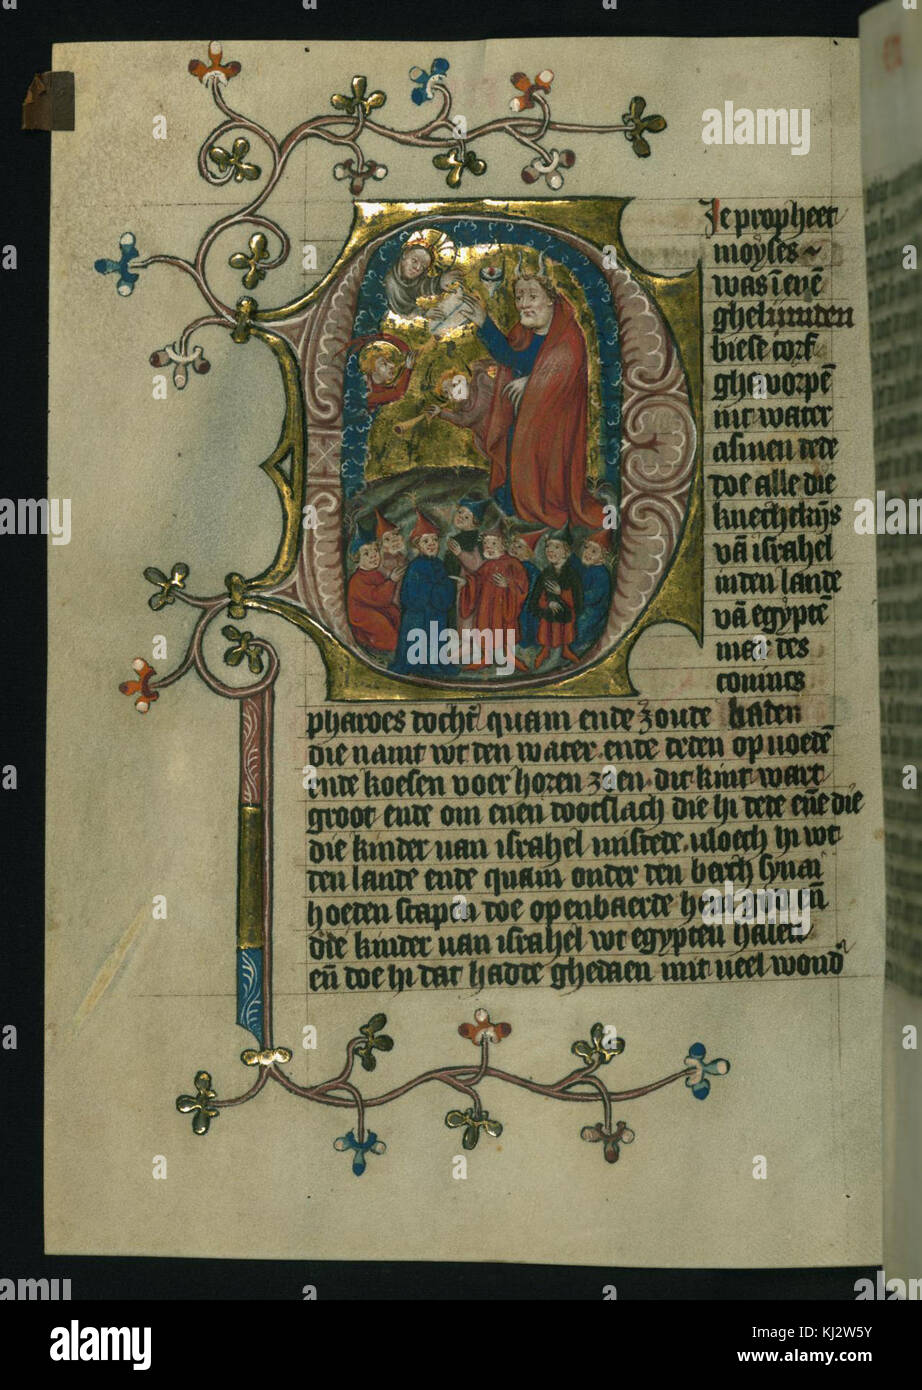 Je propheet
moyses
was ī eyē
ghebunden
biese corf
gheworpē
int water
almen dede
doe alle die
knechtkijs
vā israhel
inden lande
vā egyptē
mar des
conincs
pharoes docht quam ende zoude baden
die namt wt den water ende deden op uoedē
ende koesen voer horen zoen dit kint wart
groot ende om enen dootslach die hi dede eñe die
die kinder uan israhel misdede uloech hi wt
den lande ende quam onder den berch synai
hoeden scapen doe openbaerde hem god eñ
die kinder uan israhel wt egypten halen
eñ doe hi dat hadde ghedaen mit ueel wond
alamy
Image ID: KJ2W5Y
www.alamy.com